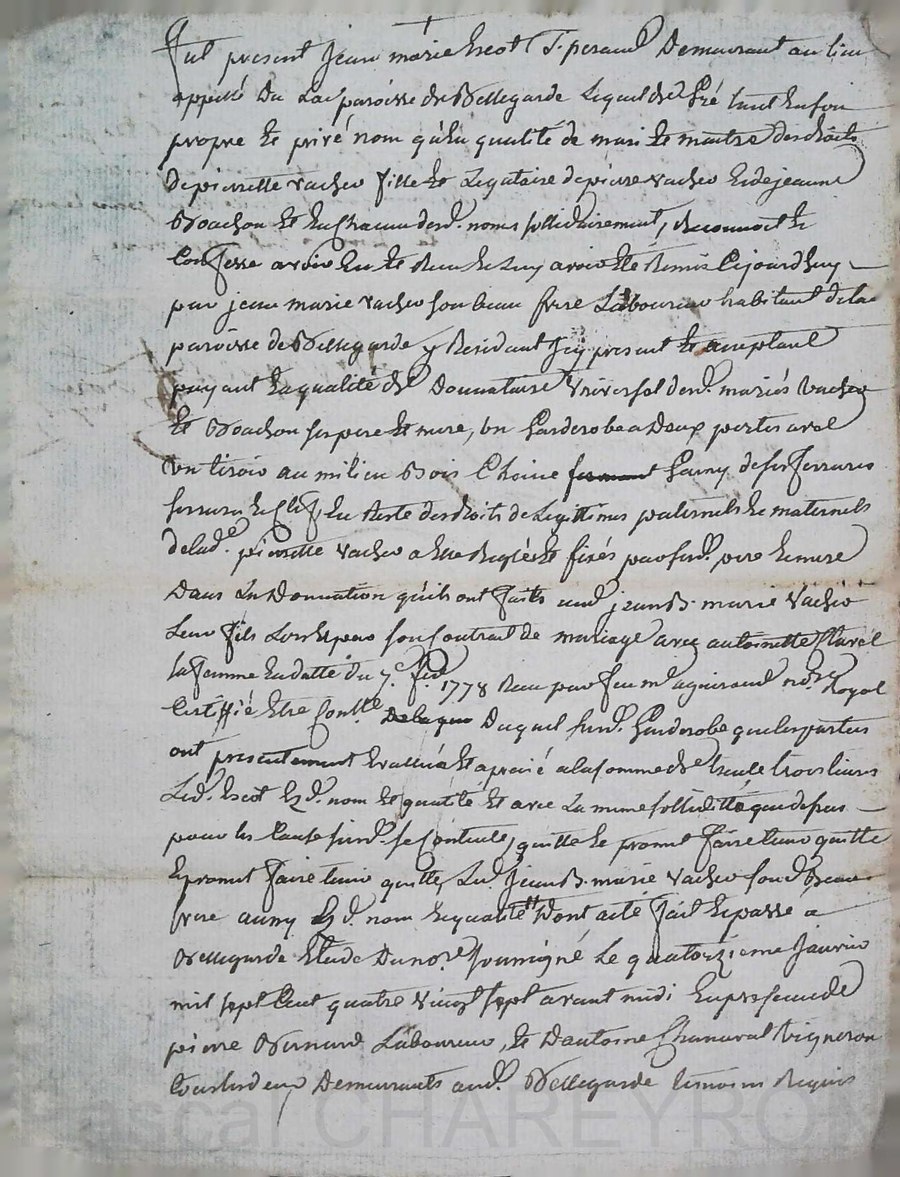 Fut present Jean marie Escot Demeurant au lieu
appellé Du Lac paroisse de Bellegarde Lequel de Gré tant En son
propre Et privé nom qu'En qualité de mari Et maitre des droits
de pierrette vacher fille Et Legataire de pierre vacher Et de jeanne
Boachon Et En Chacun desd. noms sollidairement, Reconnoit Et
Confesse avoir Eu Et Receu Et Luy avoir Eté Remis Cejourdhuy
par jean marie vacher son beau frere Laboureur habitant de la
paroisse de Bellegarde y Residant Icy present Et acceptant
payant En qualité de Donnataire Universel desd. mariés vacher
Et Boachon ses pere Et mere, un Garderobe a Deux portes avec
un tiroir au milieu Bois Chaine fermant Garny de ses ferrures
serrure Et Clef, En Reste des droits de Legittimes paternels Et maternels
de lad.e pierrette vacher a Elle Reglés Et fixés par sesd. pere Et mere
Dans La Donnation qu'ils ont faite aud. jean B. marie vacher
Leur fils Lors Et par son Contrat de mariage avec antoinette
sa femme En datte du 7.e 1778 Receu par feu me aguiraud Royal
Certiffié Etre Contlé De laque Duquel susd. Garderobe que les parties
ont presentement Evallué Et aprecié a la somme de trente trois livres
Led. Escot Esd. nom Et qualité Et avec La meme sollidité que dessus
pour Les Causes susd. se Contente, quitte Et promet faire tenir quitte
Et promet faire tenir quitte Led. Jean B. marie vacher sond. Beau
frere aussy Esd. nom Et qualité Dont acte fait Et passé a
Bellegarde Etude Du no.re soussigné Le quatorzieme Janvier
mil sept Cent quatre vingt sept avant midi En presence de
pierre Bernard Laboureur, Et D'antoine Chanaval vigneron
tous Les deux Demeurants aud. Bellegarde temoins Requis
Pascal CHAREYRON